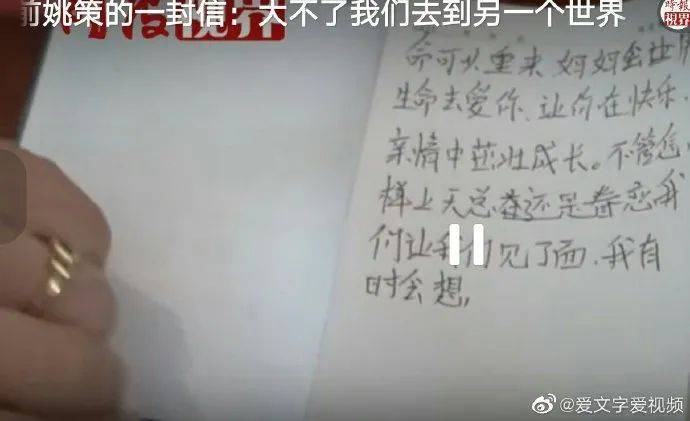 前姚策的一封信：大不了我们去到另一个世界
時報
視界
视界
命可以重来 妈妈会让用
生命去爱你、让你在快乐、
亲情中茁壮成长。不管怎
样上天总是还是眷恋我
们让我们见了面、我有
时会想，
@爱文字爱视频